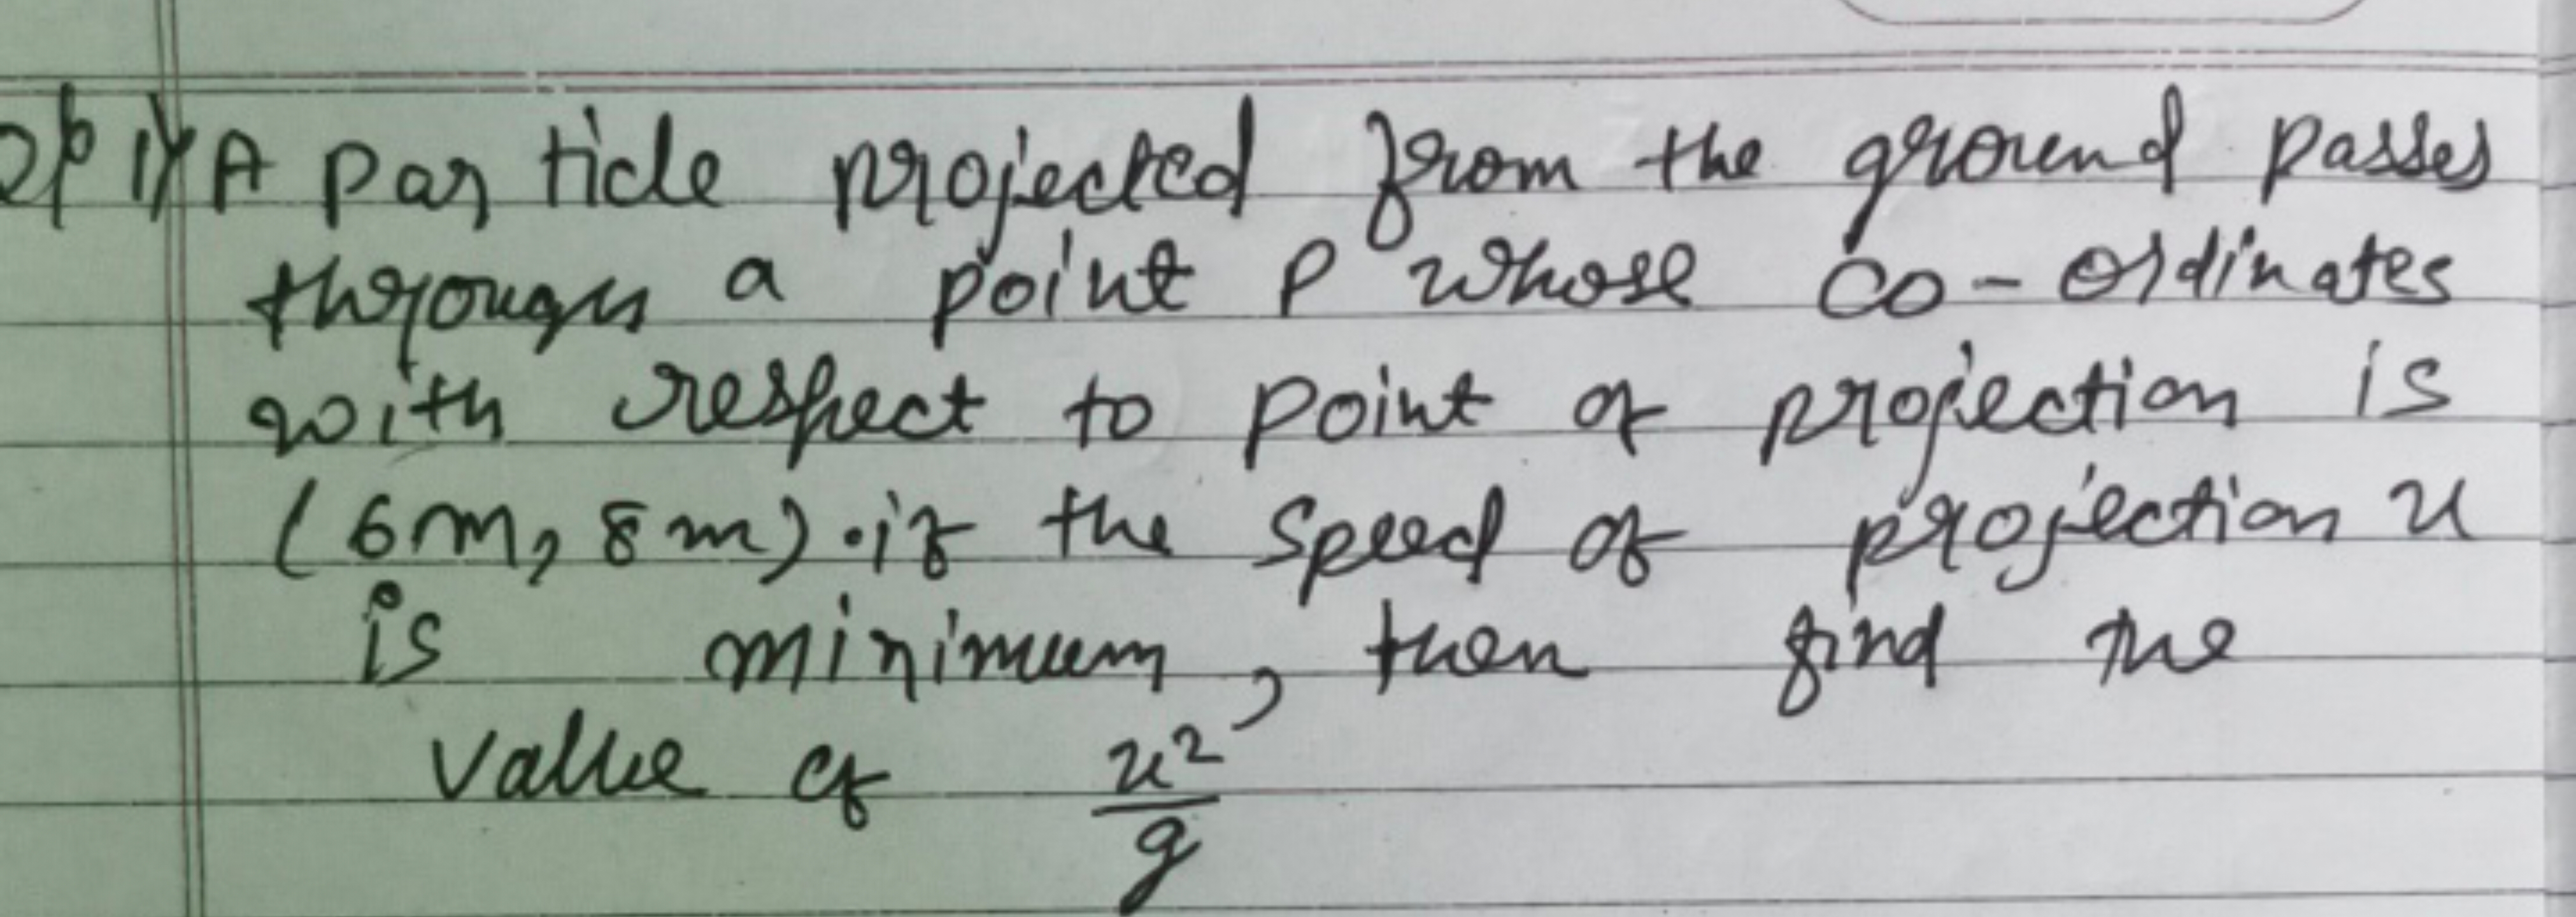 1) A Particle projected from the ground passes
through a point P whose co-ordinates
with respect to point of projection is
(6m, 8m). if the speed of projection u
is minimum, then find the
value of u²/g